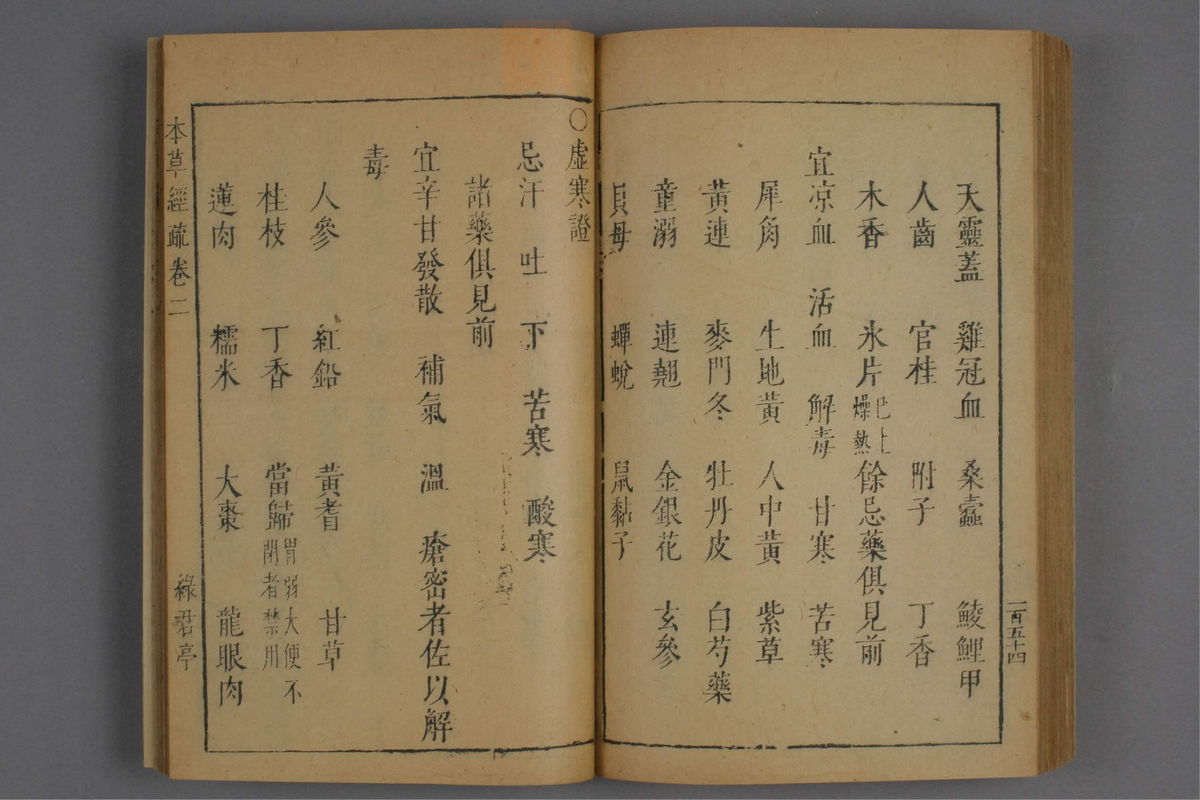 一百五十四
天靈蓋 雞冠血 桑蠹 鯪鯉甲
人齒 官桂 附子 丁香
木香 氷片 已上燥熱 餘忌藥俱見前
宜凉血 活血 解毒 甘寒 苦寒
犀角 生地黃 人中黃 紫草
黃連 麥門冬 牡丹皮 白芍藥
童溺 連翹 金銀花 玄參
貝母 蟬蛻 鼠黏子
○虛寒證
忌汗 吐 下 苦寒 酸寒
諸藥俱見前
宜辛甘發散 補氣 溫 瘡密者佐以解
毒
人參 紅鉛 黃耆 甘草
桂枝 丁香 當歸 胃弱大便不閉者禁用
蓮肉 糯米 大棗 龍眼肉
本草經疏卷二 綠君亭